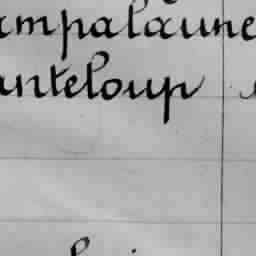 ampalaune
anteloup